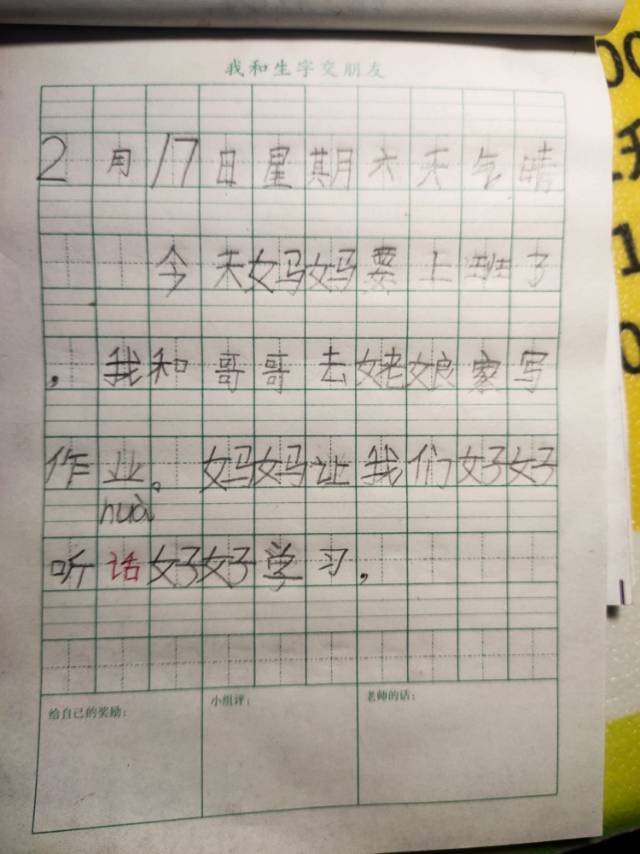 我和生字交朋友
2月17日星期六天气晴
今天妈妈要上班了
，我和哥哥去姥娘家写
作业。妈妈让我们好好
huà
听话好好学习，
给自己的奖励：
小组评：
老师的话：